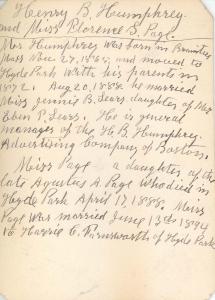 Henry B. Humphrey.
and Miss Florence S. Page.
Mr. Humphrey was born in
Mass Nov 27, and moved to
Hyde Park with his parents in
1872. Aug 20, 1888 he married
Miss Jennie B. Sears, daughter of Mrs
Eben P. Sears. He is general
manager of the H. B. Humphrey
Advertising Company of Boston.
Miss Page - a daughter of the
late A. Page who died in
Hyde Park April 17, 1888. Miss
Page was married June 13th 1894
to Harrie C. Farnsworth of Hyde Park